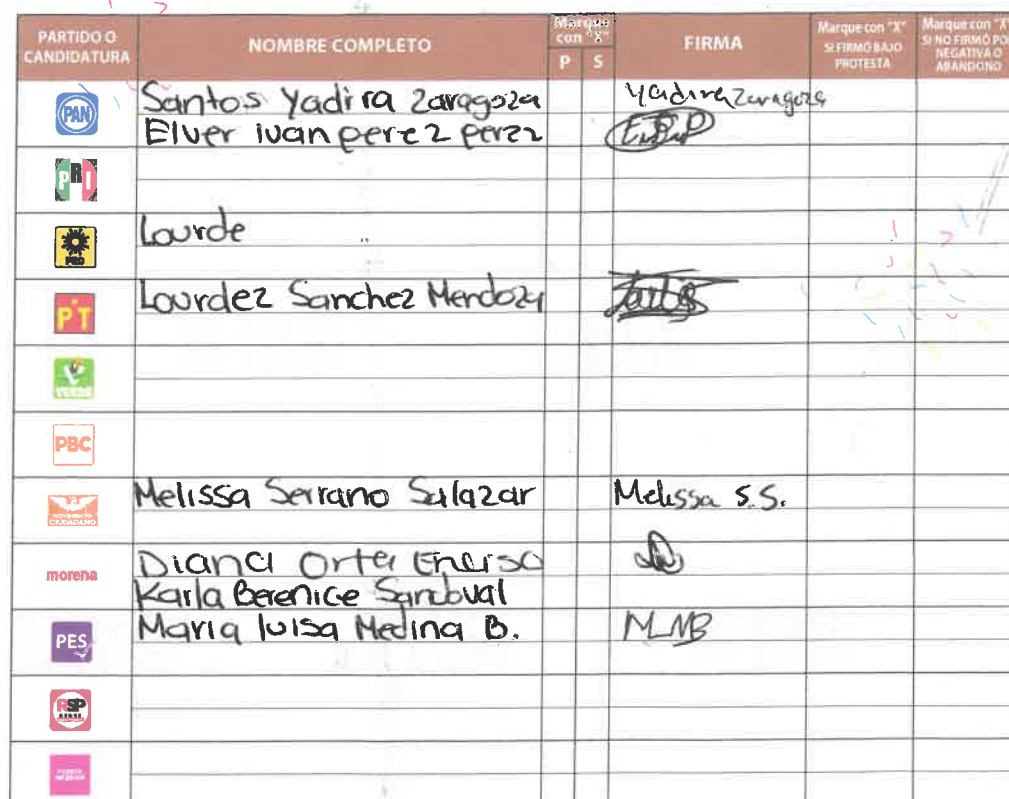 PARTIDO O CANDIDATURA NOMBRE COMPLETO Marque con "X" P S FIRMA Marque con "X" SI FIRMÓ BAJO PROTESTA Marque con "X" SI NO FIRMÓ POR NEGATIVA O ABANDONO
PAN Santos Yadira Zaragoza Yadira Zaragoza
Elver ivan perez perez
PRI
PRD Lourde
PT Lourdez Sanchez Mendoza
VERDE
PBC
MOVIMIENTO CIUDADANO Melissa Serrano Salazar Melissa S.S.
morena Diana Orta
Karla Berenice Sandoval
PES Maria luisa Medina B. MLMB
RSP